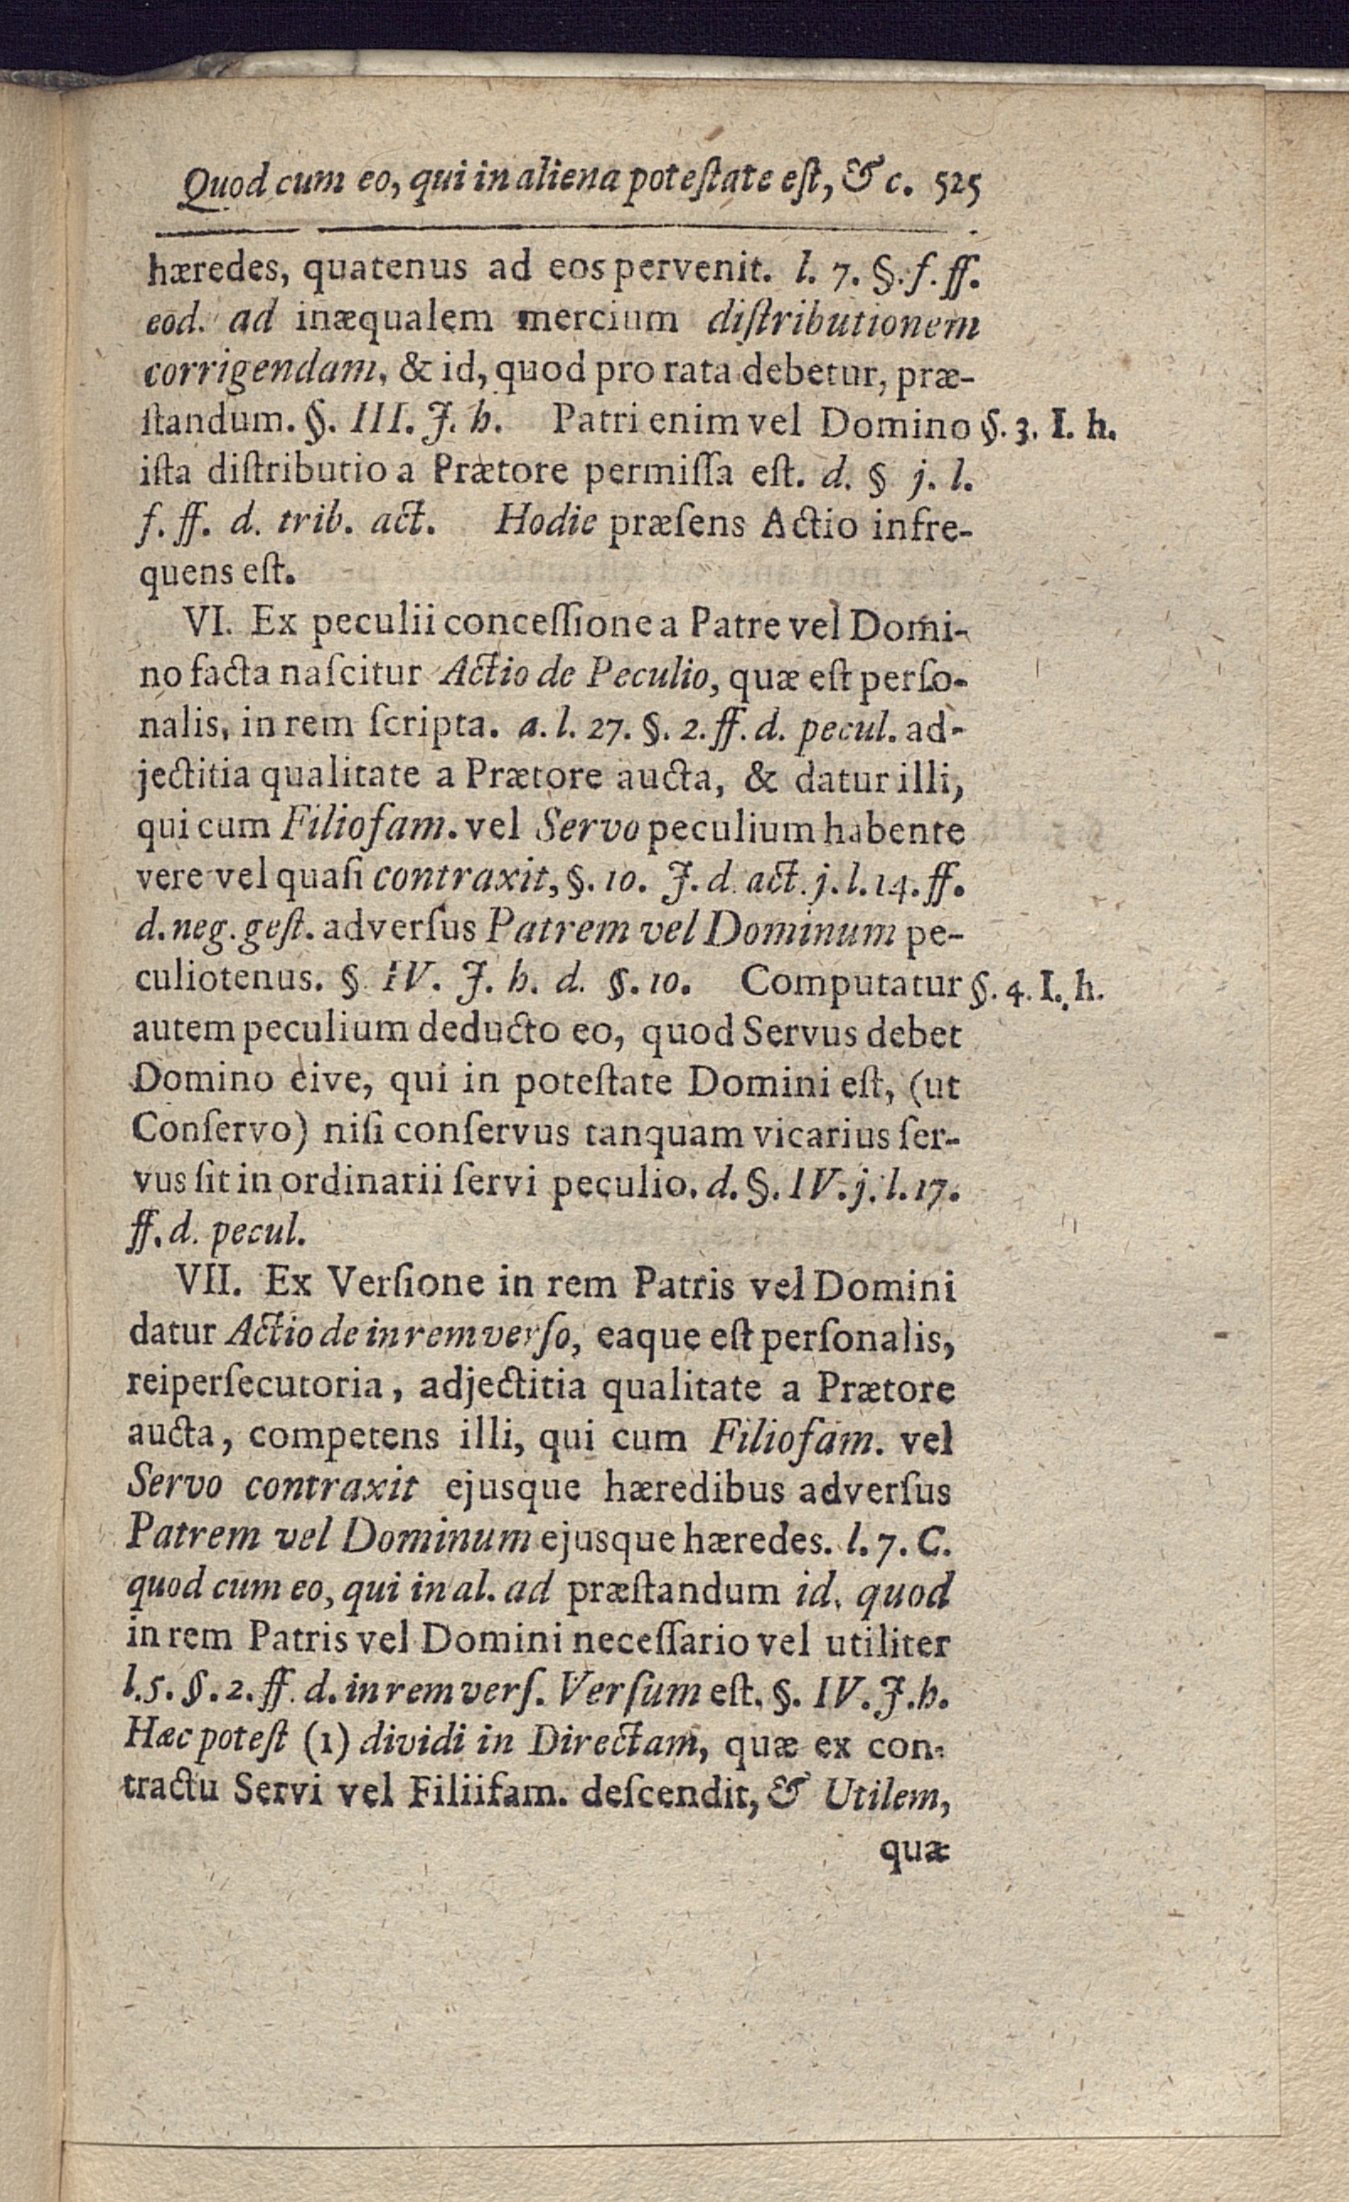 Quod cum eo, qui in aliena poteſtate eſt, & c. 525
hæredes, quatenus ad eos pervenit. l. 7. §. f. ff.
eod. ad inæqualem mercium diſtributionem
corrigendam, & id, quod pro rata debetur, præ-
ſtandum. §. III. J. h. Patri enim vel Domino §. 3. I. h.
iſta diſtributio a Prætore permiſſa eſt. d. § j. l.
f. ff. d. trib. act. Hodie præſens Actio infre-
quens eſt.
VI. Ex peculii conceſſione a Patre vel Domi-
no facta naſcitur Actio de Peculio, quæ eſt perſo-
nalis, in rem ſcripta. a. l. 27. §. 2. ff. d. pecul. ad-
jectitia qualitate a Prætore aucta, & datur illi,
qui cum Filiofam. vel Servo peculium habente
vere vel quaſi contraxit, §. 10. J. d. act. j. l. 14. ff.
d. neg. geſt. adverſus Patrem vel Dominum pe-
culiotenus. § IV. J. h. d. §. 10. Computatur §. 4. I. h.
autem peculium deducto eo, quod Servus debet
Domino eive, qui in poteſtate Domini eſt, (ut
Conſervo) niſi conſervus tanquam vicarius ſer-
vus ſit in ordinarii ſervi peculio. d. §. IV. j. l. 17.
ff. d. pecul.
VII. Ex Verſione in rem Patris vel Domini
datur Actio de in rem verſo, eaque eſt perſonalis,
reiperſecutoria, adjectitia qualitate a Prætore
aucta, competens illi, qui cum Filiofam. vel
Servo contraxit ejusque hæredibus adverſus
Patrem vel Dominum ejusque hæredes. l. 7. C.
quod cum eo, qui in al. ad præſtandum id, quod
in rem Patris vel Domini neceſſario vel utiliter
l. 5. §. 2. ff. d. in rem verſ. Verſum eſt. §. IV. J. h.
Hæc poteſt (1) dividi in Directam, quæ ex con-
tractu Servi vel Filiifam. deſcendit, & Utilem,
quæ